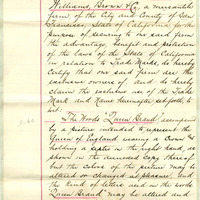 Williams, Brown & Co, a mercantile
firm of the City and County of San
Francisco, State of California for the
purpose of securing to our said firm
the advantage, benefit and protection
of the laws of the State of California
in relation to Trade Marks, do hereby
Certify that our said firm are the
exclusive owners of and do hereby
claim the exclusive use of the Trade
Mark and Name hereinafter set forth to
wit:
The Words "Queen Brand" accompanied
by a picture intended to represent the
Queen of England wearing a Crown &
holding a septer in the right hand, as
shown in the annexed copy thereof
but the colors of the picture may be
altered or changed at pleasure, and
the kind of letters used in the words
"Queen Brand" may be altered and